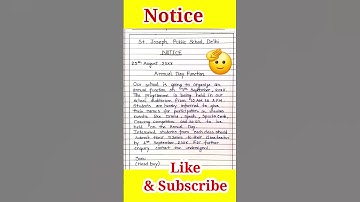 Notice
St. Joseph Public School, Delhi
NOTICE
25th August, 20XX
Annual Day Function
Our school is going to organize an
annual function on 7th September, 20XX.
The programme is being held in our
school auditorium from 10 AM to 2 PM.
Students are hereby informed to give
their names for participation in various
events like Drama, Speech,
Drawing competition and so on to be
held on the Annual Day.
Interested students from each class should
submit their names to their class teacher
by 1st September, 20XX. For further
enquiry contact the undersigned.
(Head boy)
Like
& Subscribe